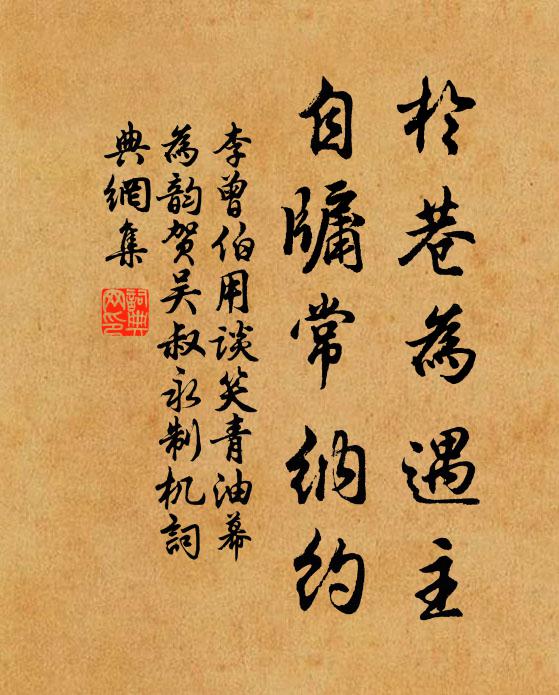 於巷為遇主
自牖常納約
李曾伯用談笑青油幕
為韵贺吴叔永制机詞
典網集
詞典
网印